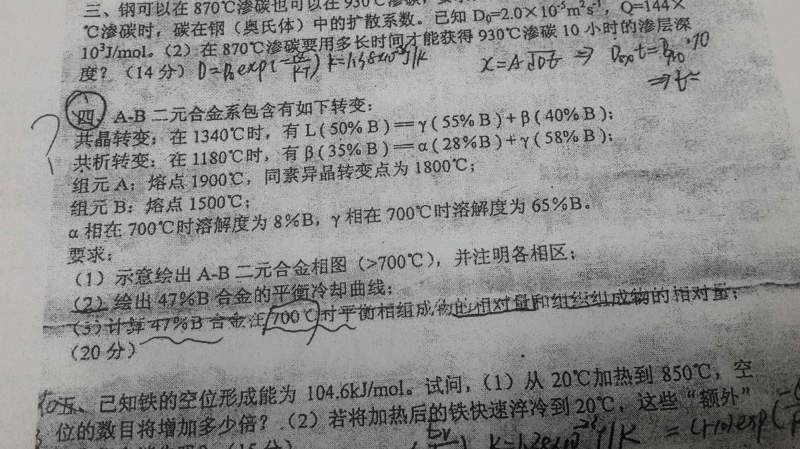 三、钢可以在870℃渗碳也可以在930℃渗碳,
℃渗碳时,碳在钢(奥氏体)中的扩散系数。已知 D₀=2.0×10⁻⁵m²s⁻¹,Q=144×
10³J/mol。(2)在870℃渗碳要用多长时间才能获得930℃渗碳10小时的渗层深
度?(14分) D=D₀exp(-Q/KT) k=1.38×10⁻²³J/K x=A√Dt ⇒ D₈₇₀t=D₉₃₀·10
⇒t=
四、A-B二元合金系包含有如下转变:
共晶转变:在1340℃时,有L(50%B)══γ(55%B)+β(40%B);
共析转变:在1180℃时,有β(35%B)══α(28%B)+γ(58%B);
?
组元A:熔点1900℃,同素异晶转变点为1800℃;
组元B:熔点1500℃;
α相在700℃时溶解度为8%B,γ相在700℃时溶解度为65%B。
要求:
(1)示意绘出A-B二元合金相图(>700℃),并注明各相区;
(2)绘出47%B合金的平衡冷却曲线;
(3)计算47%B合金在700℃时平衡相组成物的相对量和组织组成物的相对量;
(20分)
五、已知铁的空位形成能为104.6kJ/mol。试问,(1)从20℃加热到850℃,空
位的数目将增加多少倍?(2)若将加热后的铁快速淬冷到20℃,这些“额外”
(15分) k=1.38×10⁻²³J/K